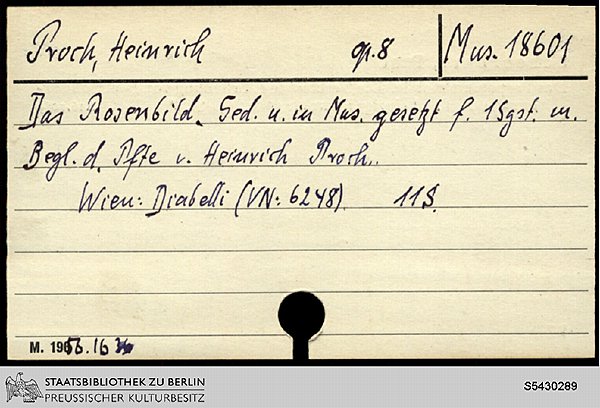 Proch, Heinrich op. 8 Mus. 18601
Das Rosenbild. Ged. u. in Mus. gesetzt f. 1 Sgst. m.
Begl. d. Pfte v. Heinrich Proch.
Wien: Diabelli (VN: 6248). 11 S.
M. 1956.16
STAATSBIBLIOTHEK ZU BERLIN
PREUSSISCHER KULTURBESITZ
S5430289